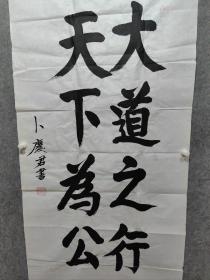 大道之行
天下為公
卜慶君書